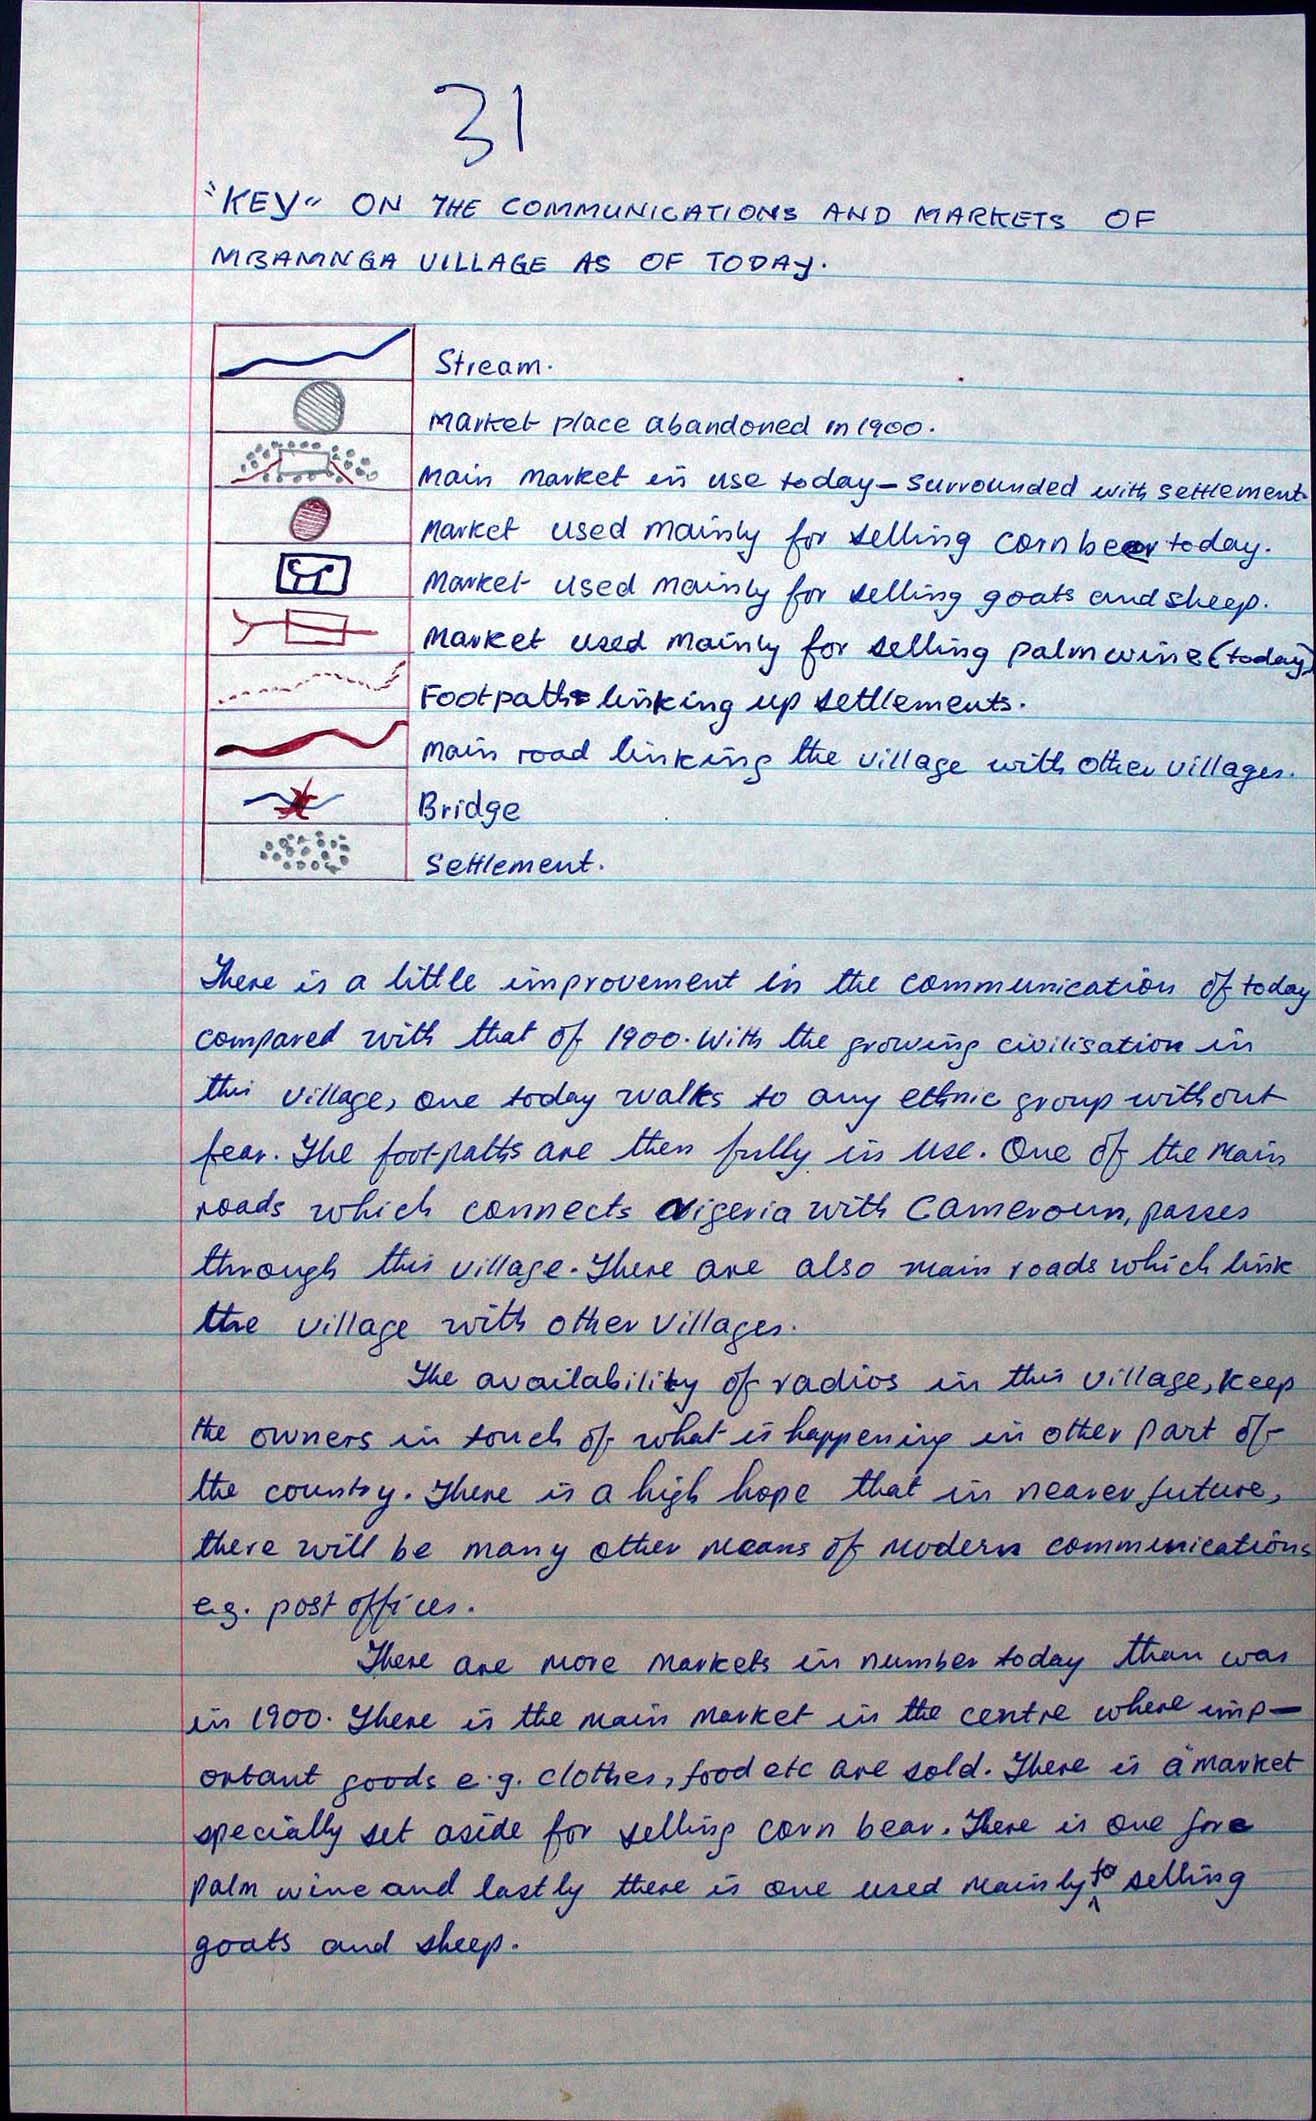 31
"KEY" ON THE COMMUNICATIONS AND MARKETS OF
MBAMNGA VILLAGE AS OF TODAY.
Stream.
Market place abandoned in 1900.
Main market in use today - surrounded with settlement.
Market used mainly for selling corn beer today.
Market used mainly for selling goats and sheep.
Market used mainly for selling palm wine (today)
Footpaths linking up settlements.
Main road linking the village with other villages.
Bridge
Settlement.
There is a little improvement in the communication of today
compared with that of 1900. With the growing civilisation in
this village, one today walks to any ethnic group without
fear. The foot-paths are then fully in use. One of the main
roads which connects Nigeria with Cameroun, passes
through this village. There are also main roads which link
the village with other villages.
The availability of radios in this village, keep
the owners in touch of what is happening in other part of
the country. There is a high hope that in nearer future,
there will be many other means of modern communications
e.g. post offices.
There are more markets in number today than was
in 1900. There is the main market in the centre where imp-
ortant goods e.g. clothes, food etc are sold. There is a market
specially set aside for selling corn bear. There is one for
palm wine and lastly there is one used mainly to selling
goats and sheep.